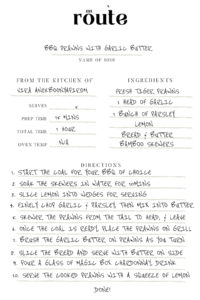 en
route
BBQ PRAWNS WITH GARLIC BUTTER
NAME OF DISH
FROM THE KITCHEN OF
VIRA ANEKBOONYAPIROM
SERVES
PREP TIME 15 MINS
TOTAL TIME 1 HOUR
OVEN TEMP N/A
INGREDIENTS
FRESH TIGER PRAWNS
1 HEAD OF GARLIC
1 BUNCH OF PARSLEY
LEMON
BREAD & BUTTER
BAMBOO SKEWERS
DIRECTIONS
1. START THE COAL FOR YOUR BBQ OF CHOICE
2. SOAK THE SKEWERS IN WATER FOR 10MINS
3. SLICE LEMON INTO WEDGES FOR SERVING
4. FINELY CHOP GARLIC & PARSLEY THEN MIX INTO BUTTER
5. SKEWER THE PRAWNS FROM THE TAIL TO HEAD, & LEAVE
6. ONCE THE COAL IS READY, PLACE THE PRAWNS ON GRILL
7. BRUSH THE GARLIC BUTTER ON PRAWNS AS YOU TURN
8. SLICE THE BREAD AND SERVE WITH BUTTER ON SIDE
9. POUR A GLASS OF MAGIC BOX CHARDONNAY DRINK
10. SERVE THE COOKED PRAWNS WITH A SQUEEZE OF LEMON
DONE!